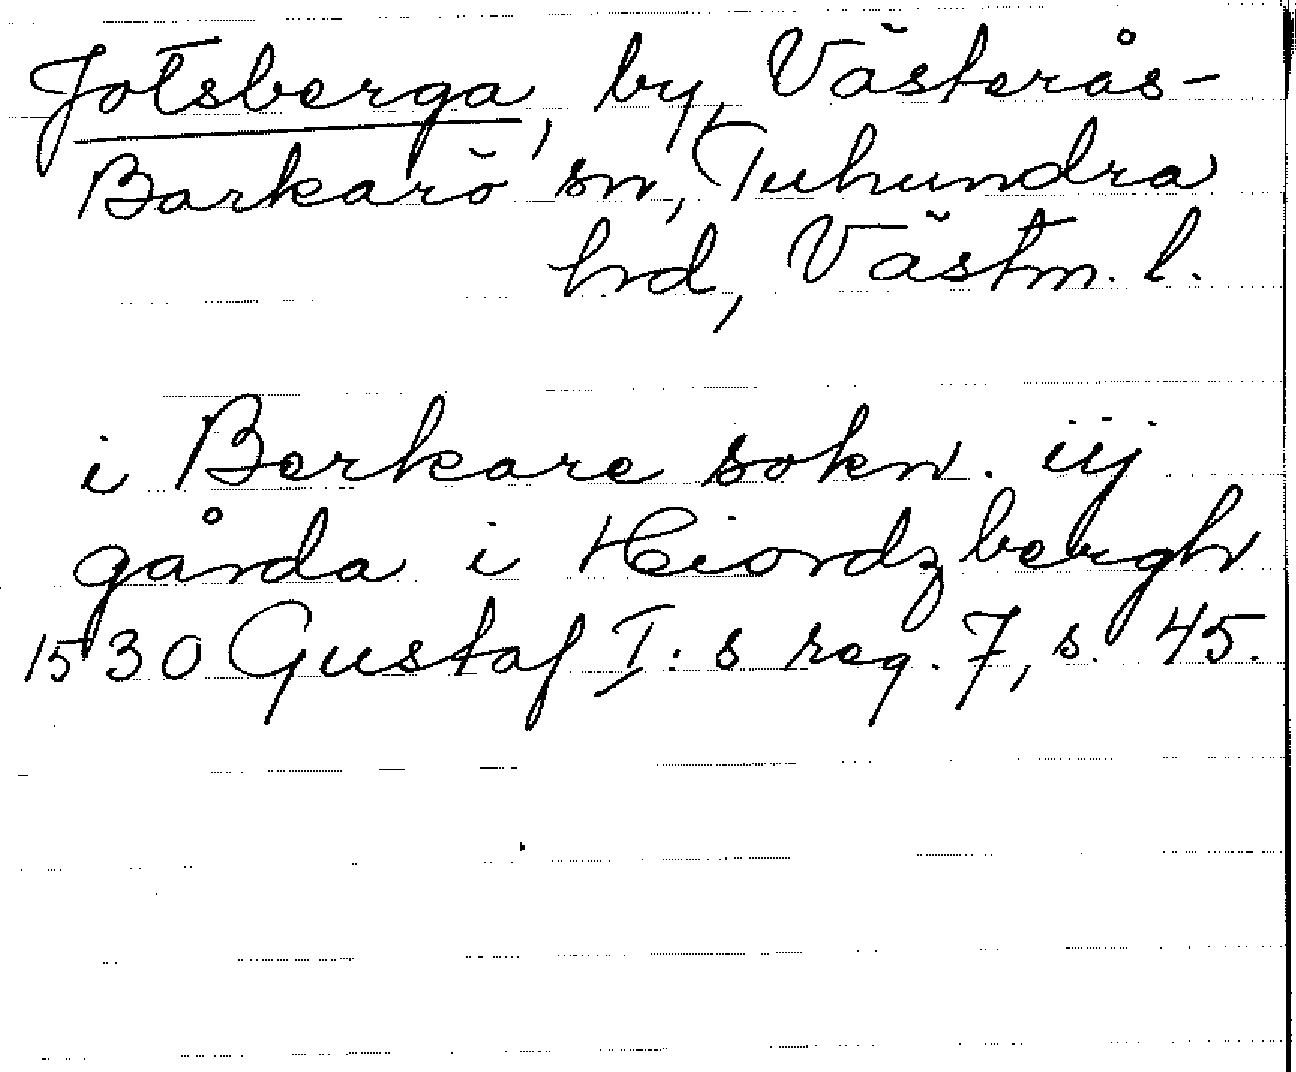 Jotsberga, by, Västerås-
Barkarö sn, Tuhundra
hrd, Västm. l.
i Berkare sokn. iij
gårda i Hiordzbergh
1530 Gustaf I:s reg. 7, s. 45.